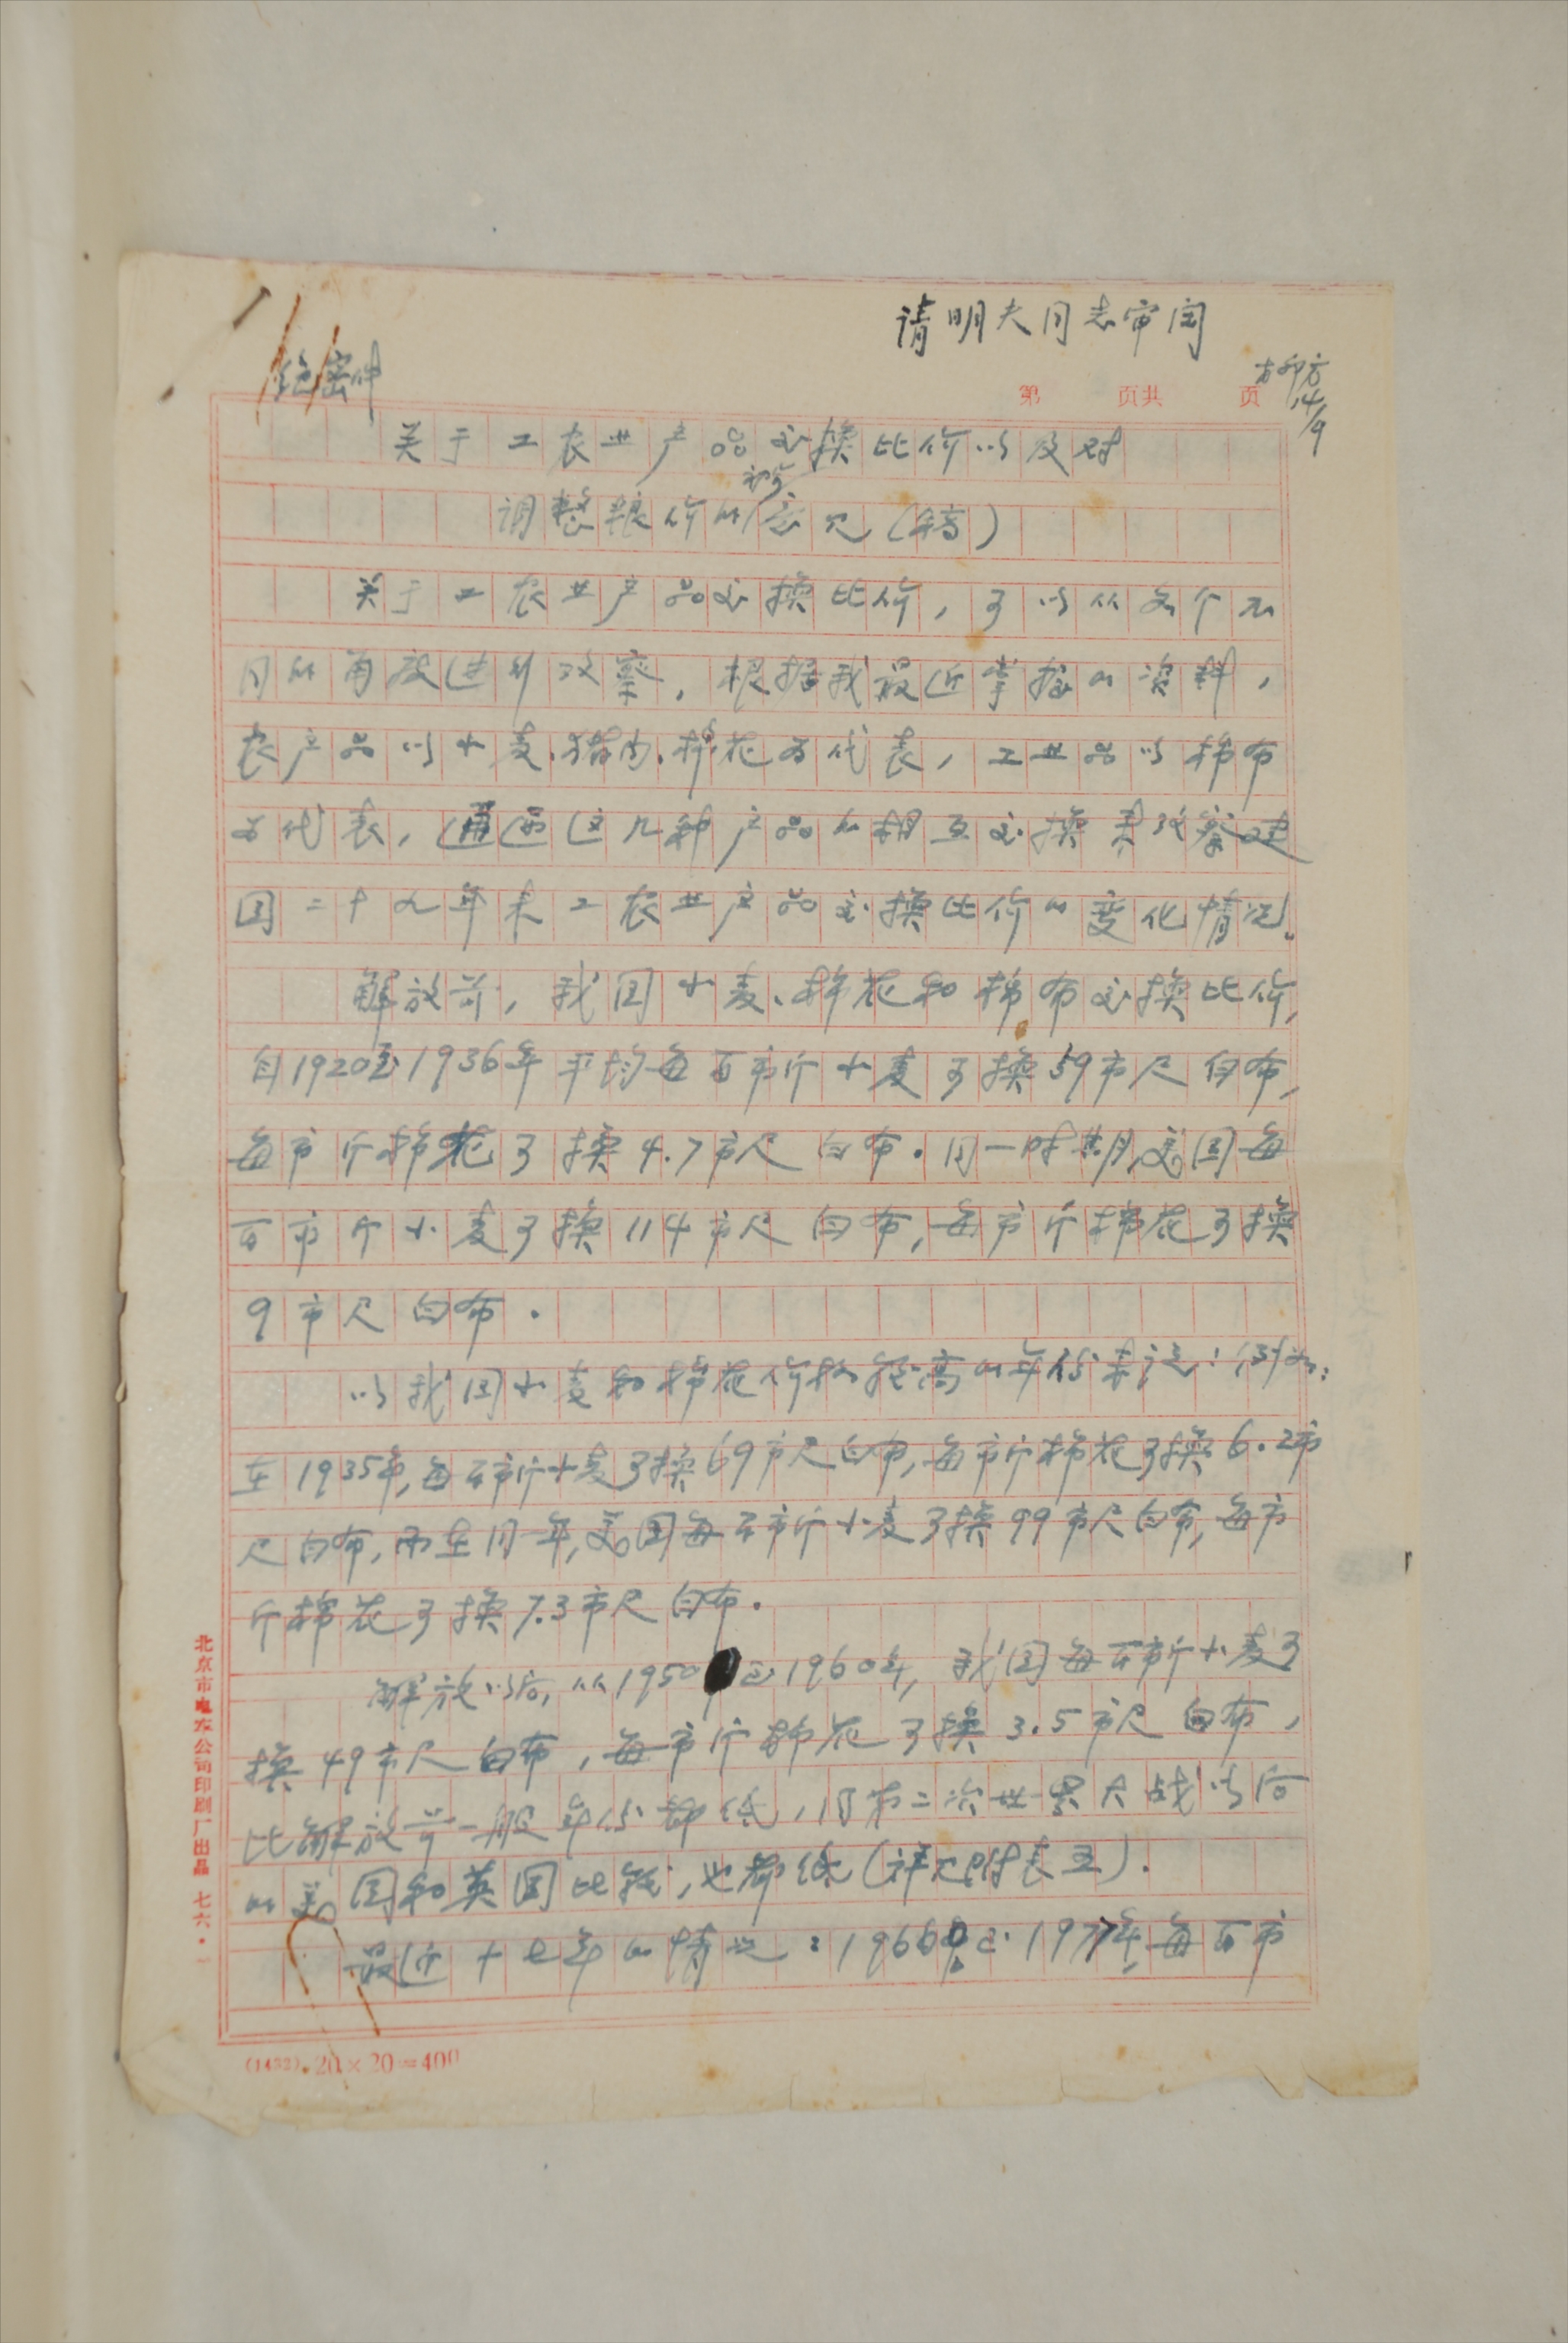 请明夫同志审阅
绝密件
14/9
第 页共 页
关于工农业产品交换比价以及对
初步
调整粮价的意见(稿)
关于工农业产品交换比价,可以从多个不
同的角度进行考察。根据我最近掌握的资料,
农产品以小麦、猪肉、棉花为代表,工业品以棉布
为代表,通过这几种产品的相互交换来考察建
国二十九年来工农业产品交换比价的变化情况。
解放前,我国小麦、棉花和棉布交换比价,
自1920至1936年平均每百市斤小麦可换59市尺白布,
每市斤棉花可换4.7市尺白布。同一时期,美国每
百市斤小麦可换114市尺白布,每市斤棉花可换
9市尺白布。
以我国小麦和棉花价格较高的年份来说:例如:
在1935年,每百市斤小麦可换69市尺白布,每市斤棉花可换6.2市
尺白布,而在同年,美国每百市斤小麦可换99市尺白布,每市
斤棉花可换7.3市尺白布。
解放以后,从1950至1960年,我国每百市斤小麦可
换49市尺白布,每市斤棉花可换3.5市尺白布,
比解放前一般年份都低,同第二次世界大战以后
的美国和英国比较,也都低(详见附表五)。
最近十七年的情况:1966年至1977年,每百市
北京市电车公司印刷厂出品 七六·一
(1432)·20×20=400